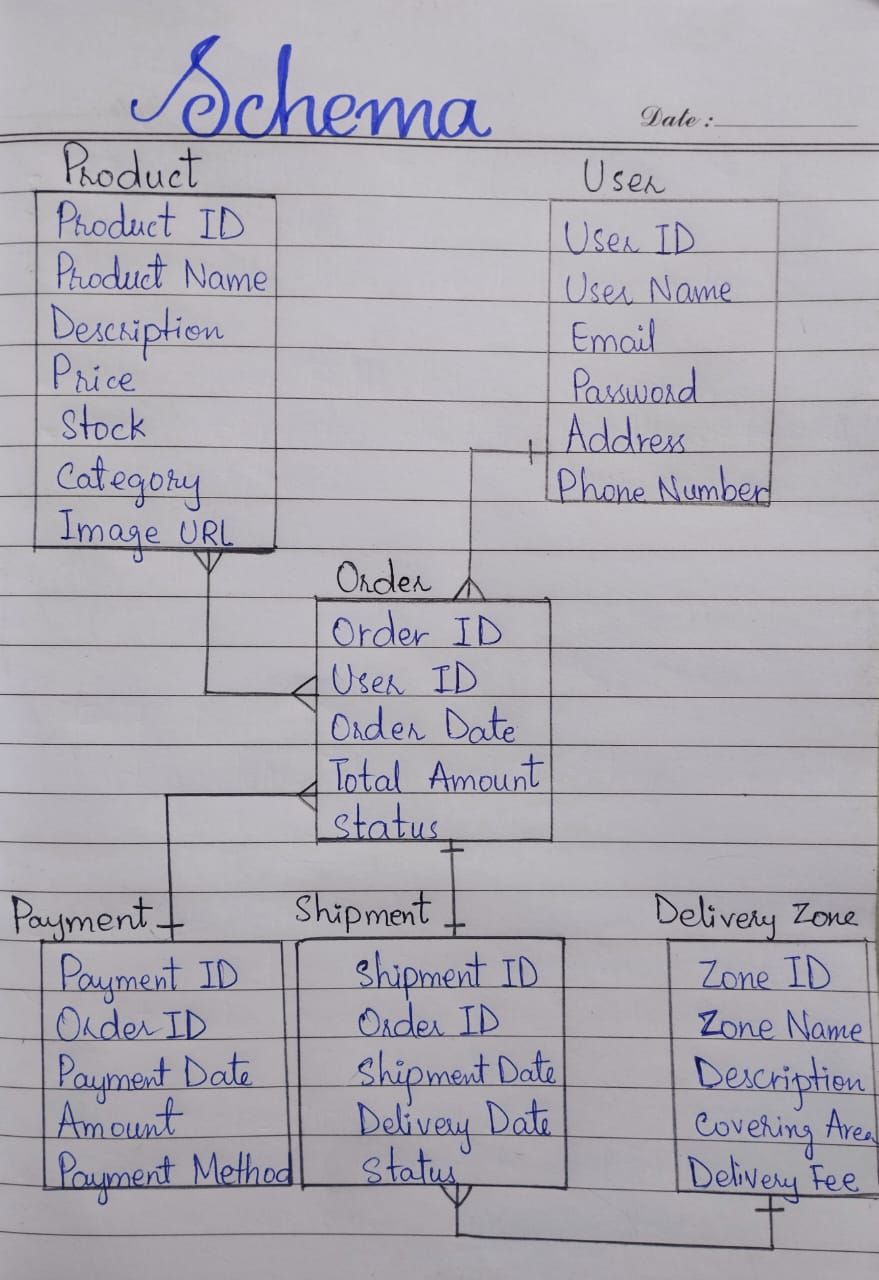 Schema
Date :
Product
Product ID
Product Name
Description
Price
Stock
Category
Image URL
User
User ID
User Name
Email
Password
Address
Phone Number
Order
Order ID
User ID
Order Date
Total Amount
Status
Payment
Payment ID
Order ID
Payment Date
Amount
Payment Method
Shipment
Shipment ID
Order ID
Shipment Date
Delivery Date
Status
Delivery Zone
Zone ID
Zone Name
Description
Covering Area
Delivery Fee